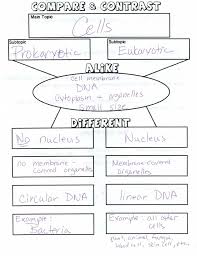 COMPARE & CONTRAST
Main Topic
Cells
Subtopic
Prokaryotic
Subtopic
Eukaryotic
ALIKE
Cell membrane
DNA
Cytoplasm + organelles
Small size
DIFFERENT
No nucleus
Nucleus
no membrane-
covered organelles
Membrane-
covered organelles
circular DNA
linear DNA
Example:
Bacteria
Example: all other
cells
plant, animal, fungus,
blood cell, skin cell, etc.